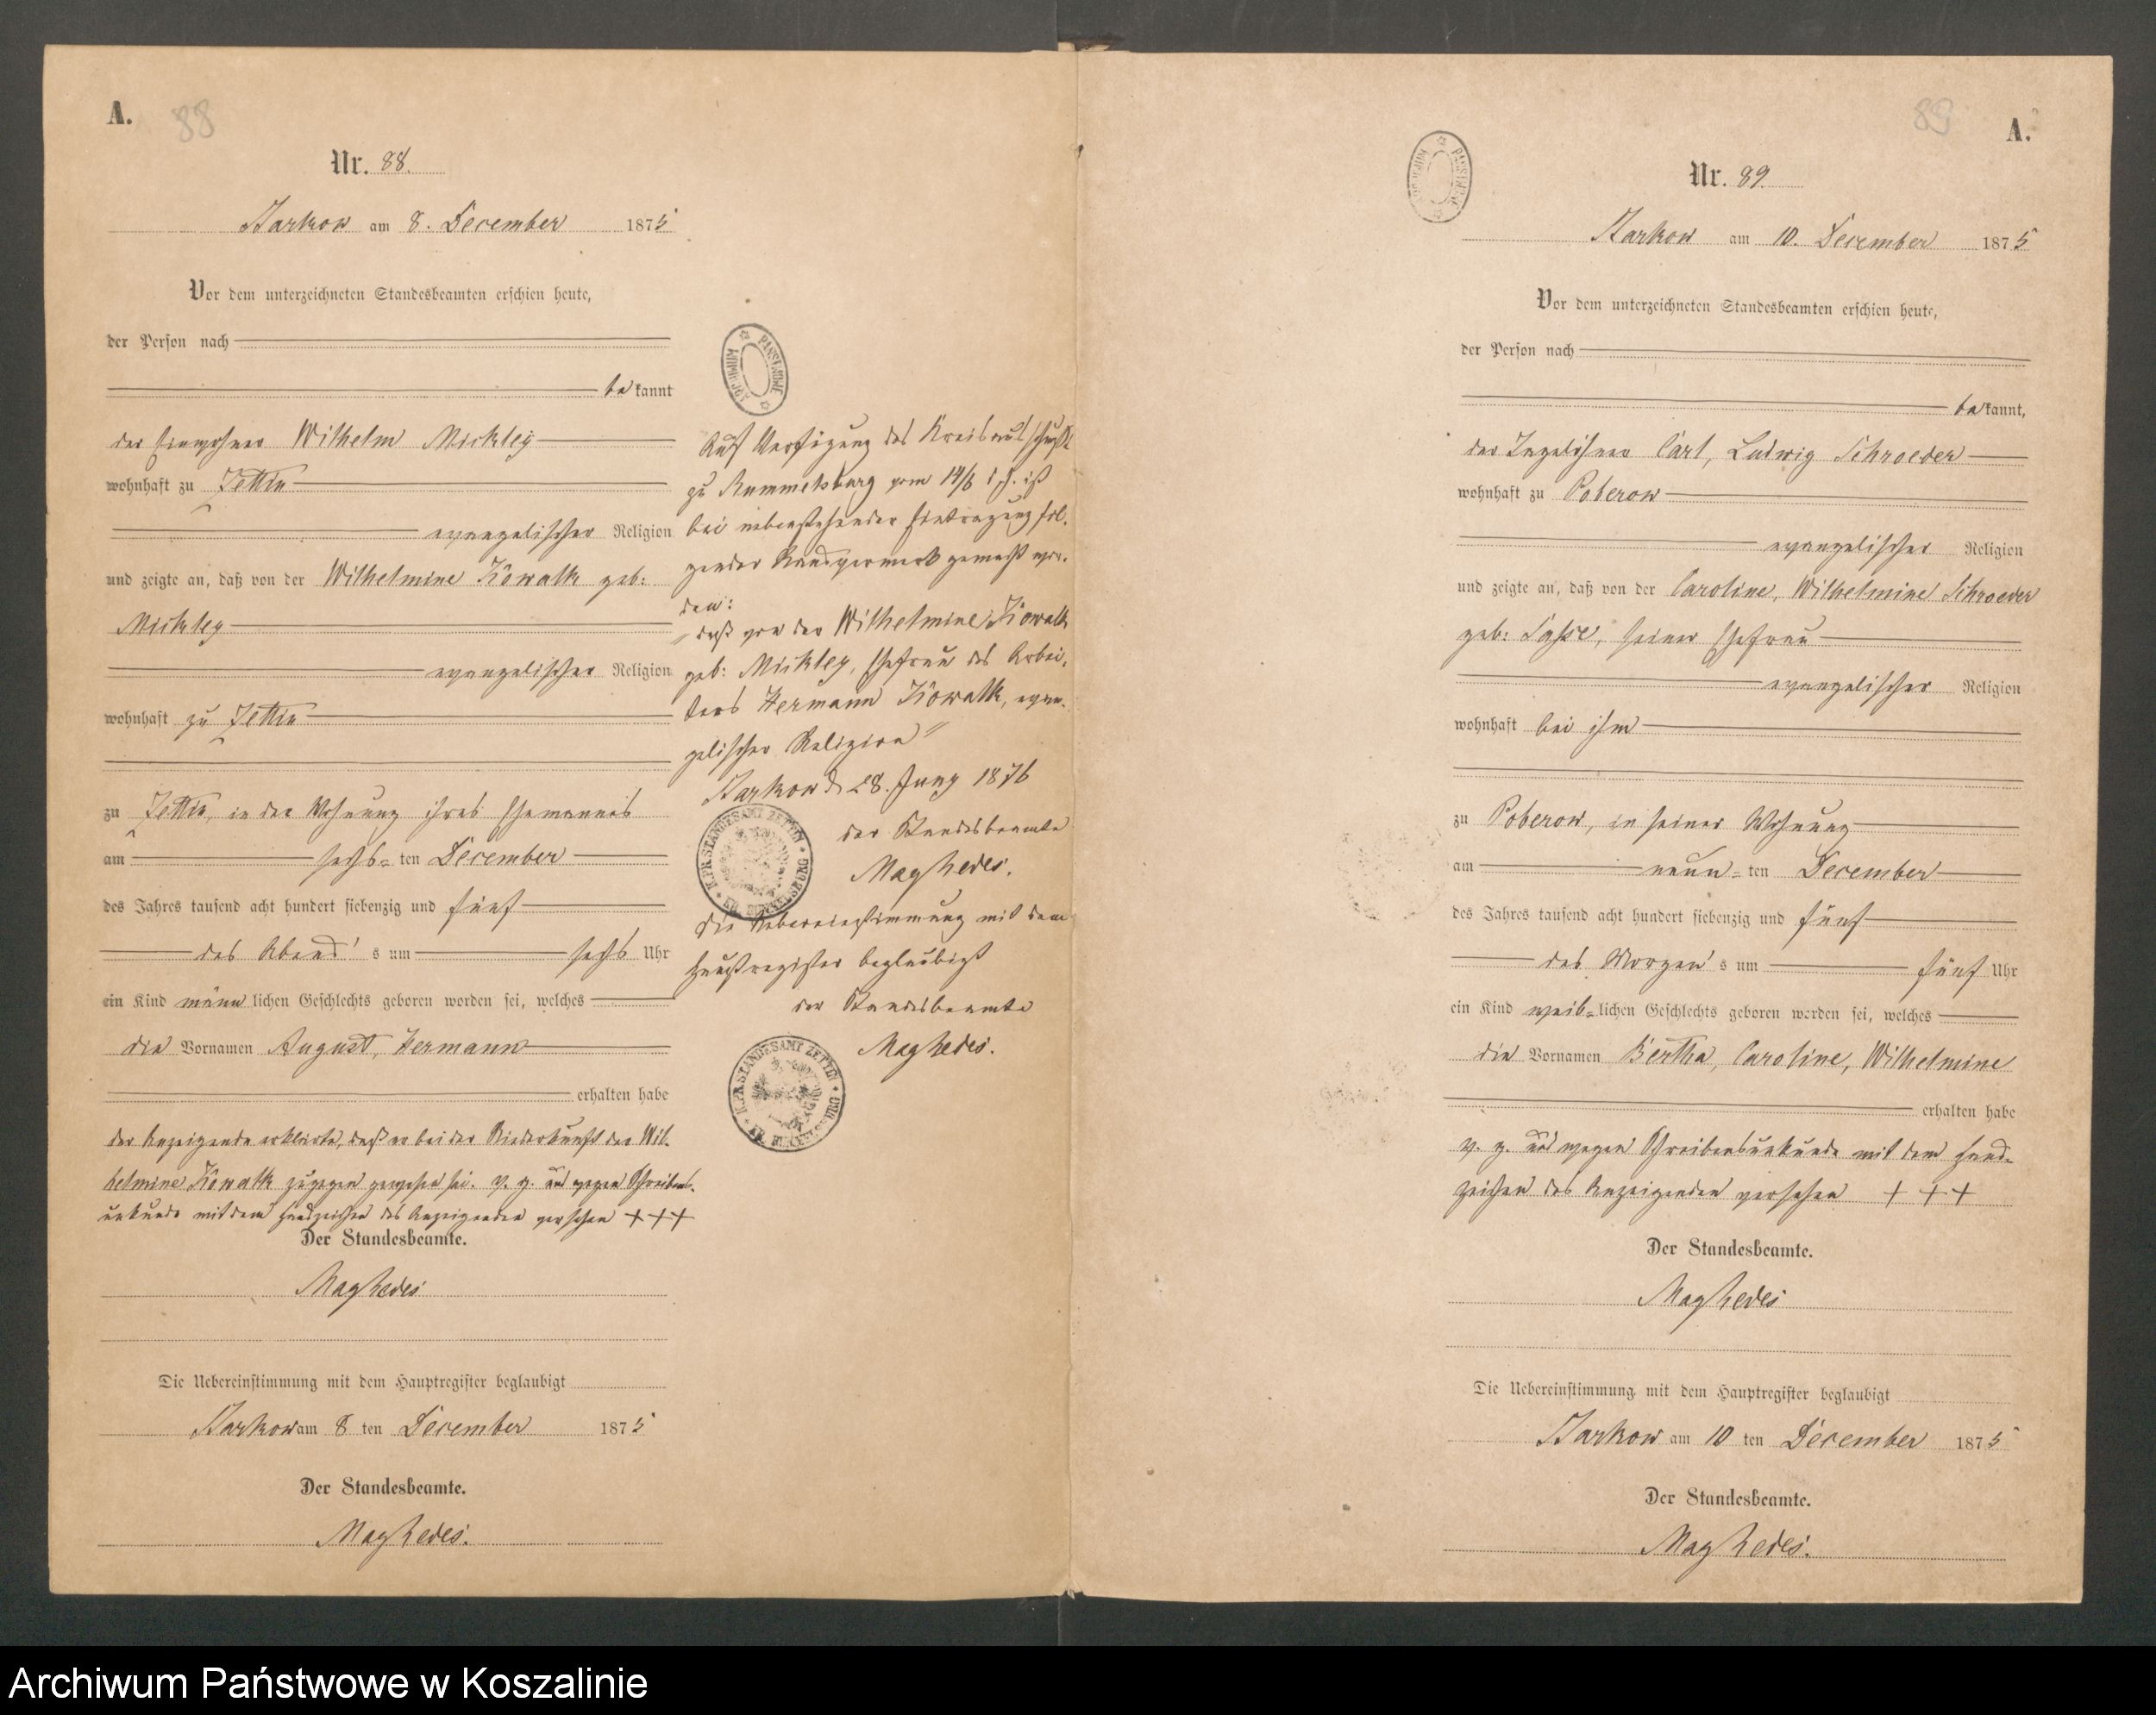 A.
88
Nr. 88.
Starkow am 8. December 1875
Vor dem unterzeichneten Standesbeamten erschien heute,
der Person nach
bekannt
der Einwohner Wilhelm Mickley
wohnhaft zu Zettin
evangelischer Religion
und zeigte an, daß von der Wilhelmine Kowalk geb:
Mickley
evangelischer Religion
wohnhaft zu Zettin
zu Zettin, in der Wohnung ihres Ehemannes
am sechs-ten December
des Jahres tausend acht hundert siebenzig und fünf
des Abend's um sechs Uhr
ein Kind männlichen Geschlechts geboren worden sei, welches
die Vornamen August, Hermann
erhalten habe
der Anzeigende erklärte, daß er bei der Niederkunft der Wil-
helmine Kowalk zugegen gewesen sei. V. g. und wegen Schreibens-
unkunde mit dem Handzeichen des Anzeigenden versehen +++
Der Standesbeamte.
Die Uebereinstimmung mit dem Hauptregister beglaubigt
Starkow am 8 ten December 1875
Der Standesbeamte.
ARCHIWUM PAŃSTWOWE
Auf Verfügung des Kreisausschusses
zu Rummelsburg vom 14/6 d. J. ist
bei nebenstehender Eintragung fol-
gender Randvermerk gemacht wor-
den:
"daß von der Wilhelmine Kowalk
geb: Mickley, Ehefrau des Arbei-
ters Hermann Kowalk, evan-
gelischer Religion"
Starkow d 28. Juny 1876
der Standesbeamte
K. PR. STANDESAMT ZETTIN KR. RUMMELSBURG
die Uebereinstimmung mit dem
Hauptregister beglaubigt
der Standesbeamte
K. PR. STANDESAMT ZETTIN KR. RUMMELSBURG
89
A.
ARCHIWUM PAŃSTWOWE
Nr. 89
Starkow am 10. December 1875
Vor dem unterzeichneten Standesbeamten erschien heute,
der Person nach
bekannt,
der Tagelöhner Carl, Ludwig Schroeder
wohnhaft zu Poberow
evangelischer Religion
und zeigte an, daß von der Caroline, Wilhelmine Schroeder
geb: seiner Ehefrau
evangelischer Religion
wohnhaft bei ihm
zu Poberow, in seiner Wohnung
am neun-ten December
des Jahres tausend acht hundert siebenzig und fünf
des Morgen's um fünf Uhr
ein Kind weib-lichen Geschlechts geboren worden sei, welches
die Vornamen Bertha, Caroline, Wilhelmine
erhalten habe
v. g. und wegen Schreibensunkunde mit dem Hand-
zeichen des Anzeigenden versehen + + +
Der Standesbeamte.
Die Uebereinstimmung mit dem Hauptregister beglaubigt
Starkow am 10 ten December 1875
Der Standesbeamte.
Archiwum Państwowe w Koszalinie